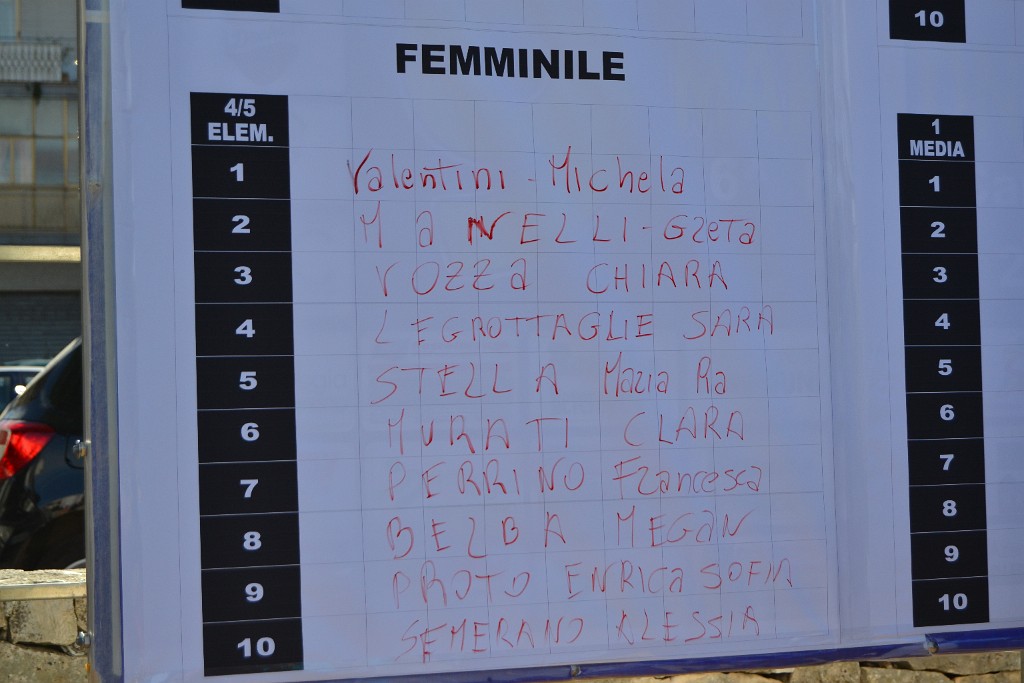 10
FEMMINILE
4/5 ELEM.
1 Valentini - Michela
2 MaNELLI - Greta
3 VOZZa CHIARA
4 LEGROTTAGLIE SARA
5 STELLA Maria Pia
6 MURATI CLARA
7 PERRINO Francesca
8 BELBA MEGaN
9 PROTO ENRICa SOFIA
10 SEMERANO KLESSIA
1 MEDIA
1
2
3
4
5
6
7
8
9
10